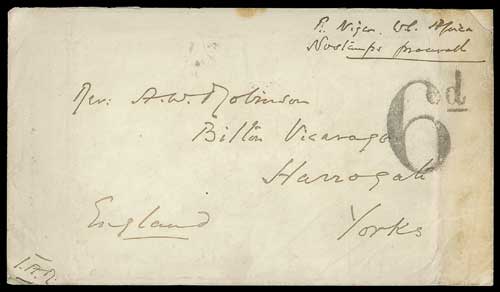 R. Niger. W. Africa
No stamps procurable
6d
Rev: A. W. Robinson
Bilton Vicarage
Harrogate
Yorks
England